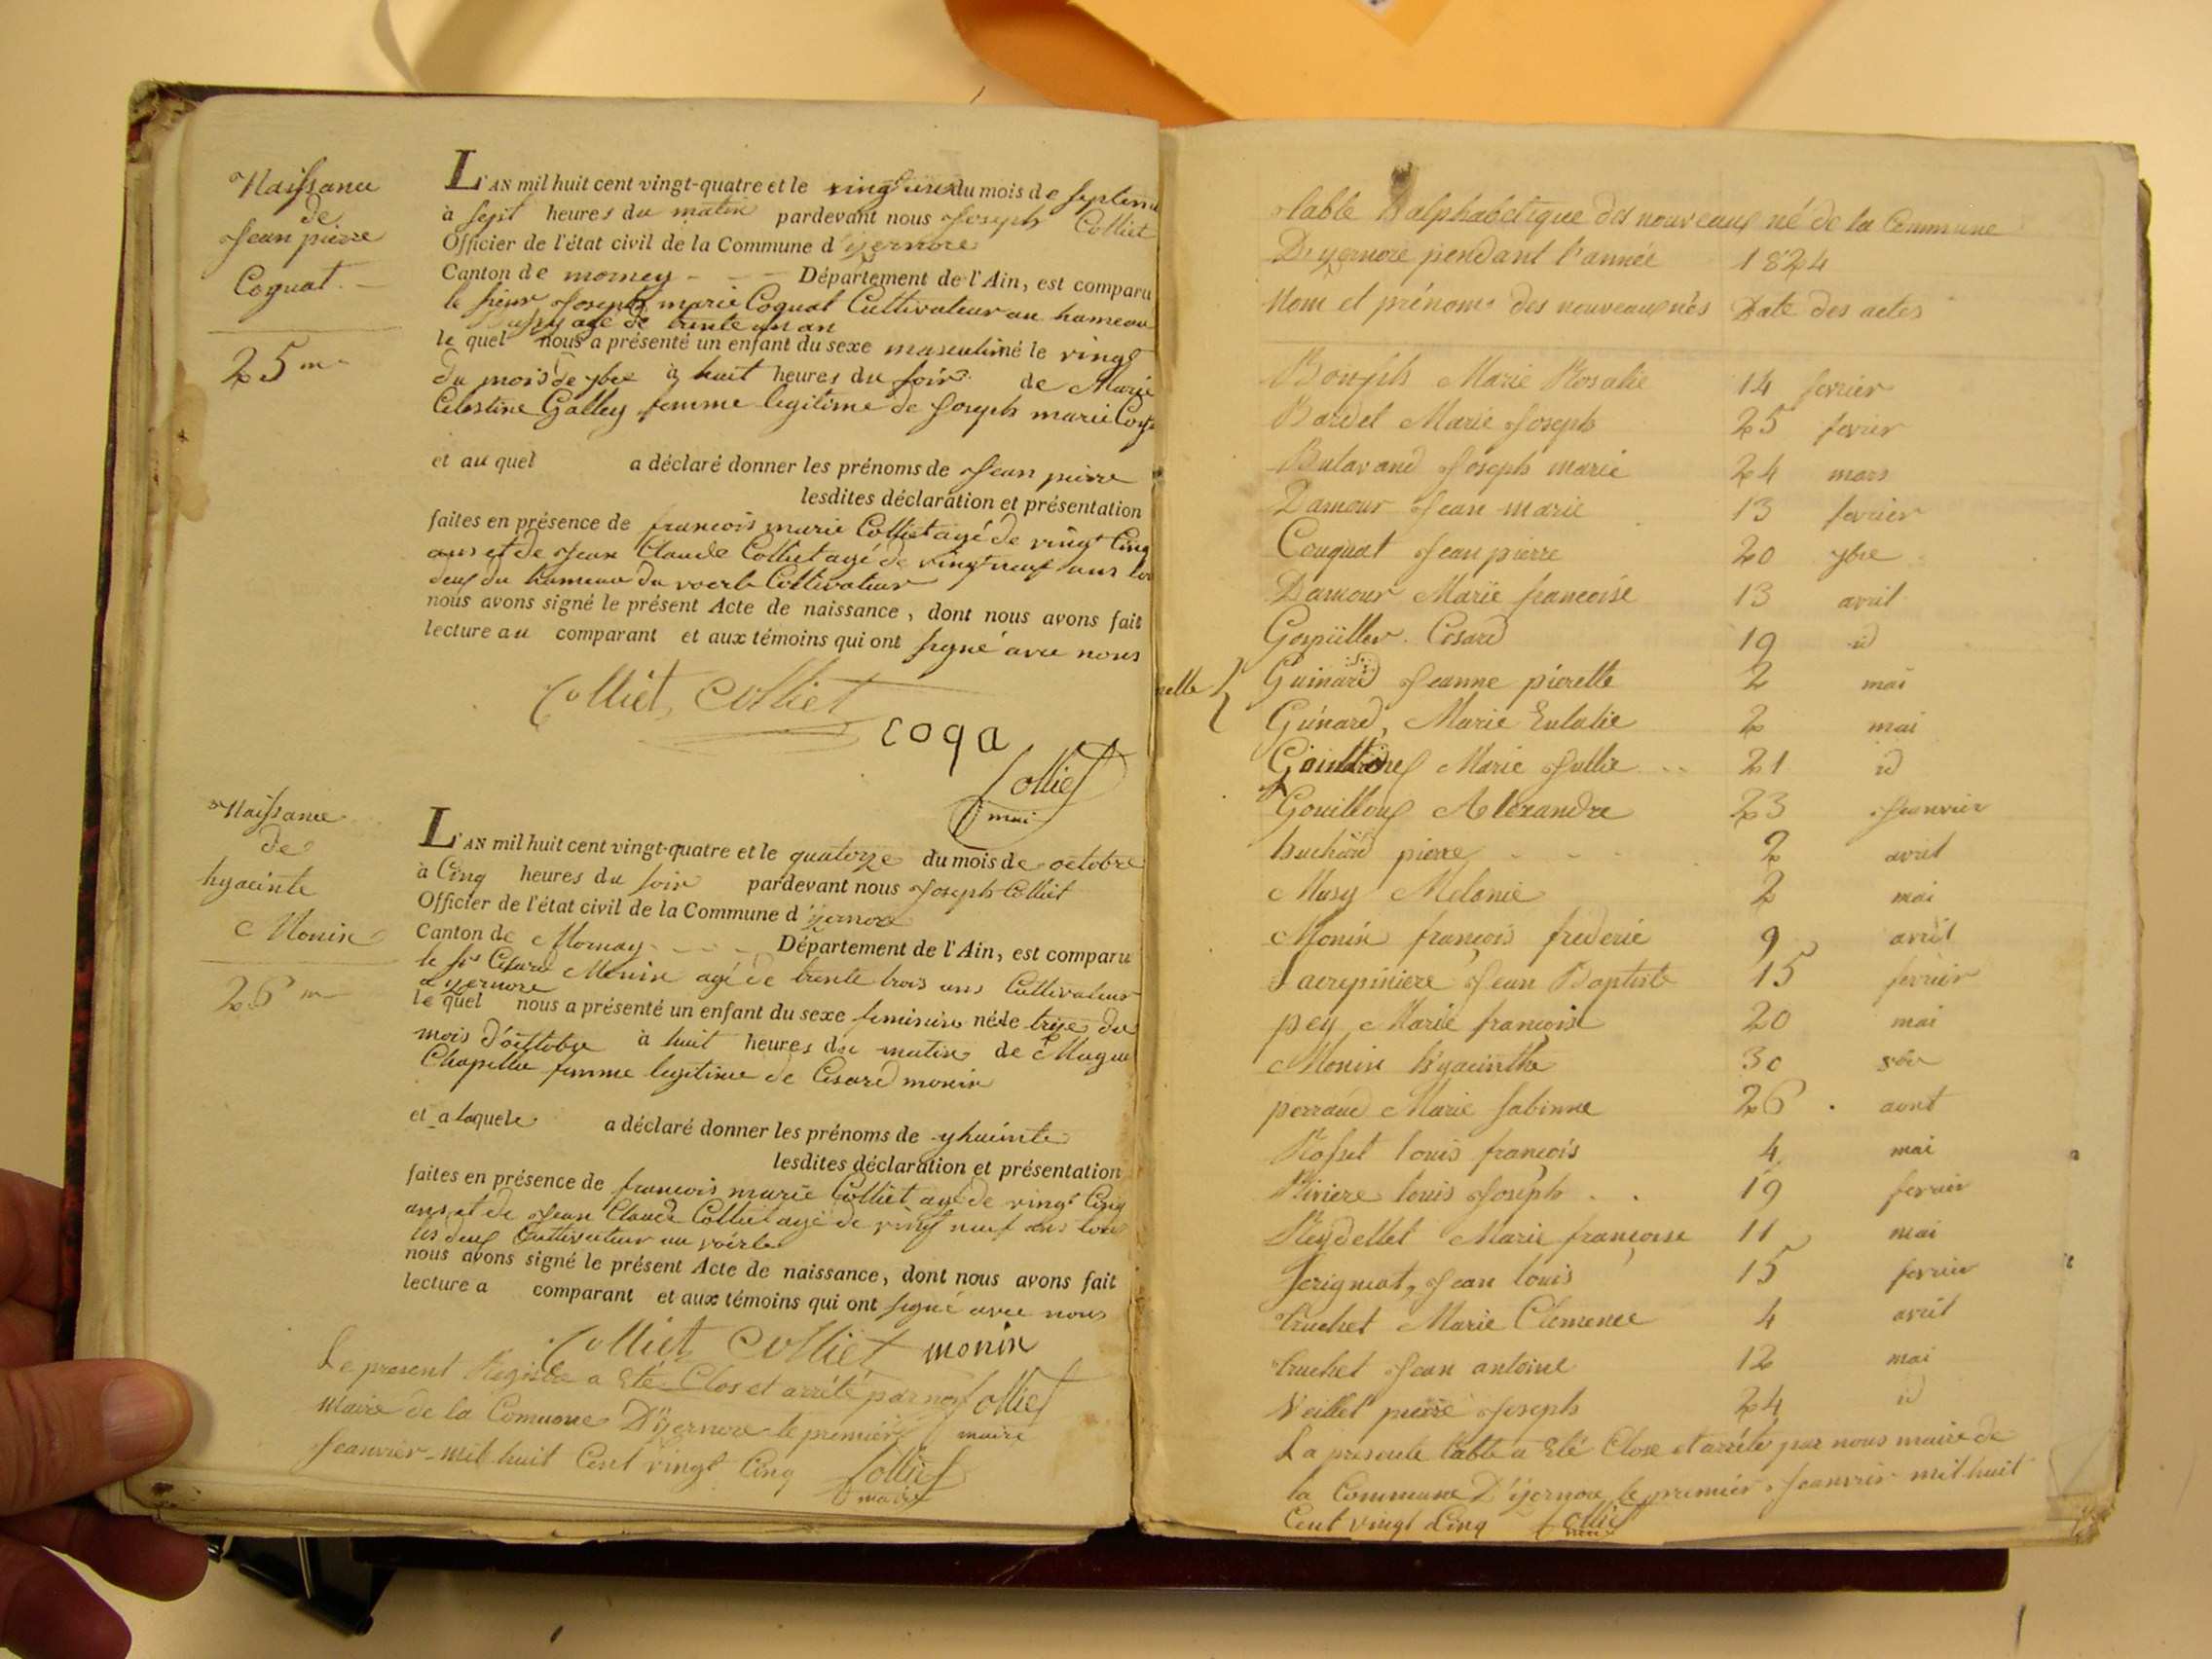 Naissance
de
Jean pierre
Coquat. —
25me
L'AN mil huit cent vingt-quatre et le du mois de septem
à sept heures du matin pardevant nous Joseph Colliet
Officier de l'état civil de la Commune d'izernore
Canton de morney - - - Département de l'Ain, est comparu
le sieur Joseph marie Coquat Cultivateur au hameau
agé de trente un an
le quel nous a présenté un enfant du sexe masculin né le vingt
du mois de 7bre à huit heures du soir de Marie
Celestine Galley femme legitime de Joseph marie Coq
et au quel a déclaré donner les prénoms de Jean pierre
lesdites déclaration et présentation
faites en présence de francois marie Colliet agé de vingt Cinq
ans et de Jean Claude Colliet agé de vingt neuf ans
deux du hameau du voerle Cultivateur
nous avons signé le présent Acte de naissance, dont nous avons fait
lecture au comparant et aux témoins qui ont signé avec nous
Colliet Colliet
coqa
Colliet
mai
Naissance
de
hyacinte
Monin
26me
L'AN mil huit cent vingt-quatre et le quatorze du mois de octobre
à Cinq heures du soir pardevant nous Joseph Colliet
Officier de l'état civil de la Commune d'izernore
Canton de Mornay - - - Département de l'Ain, est comparu
le sr Cesard Monin agé de trente trois ans Cultivateur
d'yzernore
le quel nous a présenté un enfant du sexe feminin né le treze du
mois d'octobre à huit heures du matin de
Chapelle femme legitime de Cesard monin
et a laquele a déclaré donner les prénoms de yhacinte
lesdites déclaration et présentation
faites en présence de francois marie Colliet agé de vingt Cinq
ans et de Jean Claude Colliet agé de vingt neuf ans tous
les deux Cultivateur au voerle
nous avons signé le présent Acte de naissance, dont nous avons fait
lecture a comparant et aux témoins qui ont signé avec nous
Colliet Colliet monin
Le present Registre a Eté Clos et arrété par nous Colliet
Maire de la Comune D'izernore le premier maire
Jeanvier mil huit Cent vingt Cinq Colliet
maire
table alphabetique des nouveaux né de la Commune
D'yzernore pendant l'année 1824
Nom et prénoms des nouveaux nés Date des actes
Marie Rosalie 14 fevrier
Bardet Marie Joseph 25 fevrier
Butavand Joseph marie 24 mars
Damour Jean marie 13 fevrier
Couquat Jean pierre 20 7bre
Damour Marie francoise 13 avril
Cesard 19 id
Guinard Jeanne pierette 2 mai
Guinard, Marie Eulalie 2 mai
Marie Jullie - - 21 id
Gouilloux Alexandre 23 Jeanvier
huchard pierre - - - 2 avril
Musy Melanie 2 mai
Monin françois frederic 9 avril
Jean Baptiste 15 fevrier
pey Marie françoise 20 mai
Monin hyacinthe 30 8bre
perraud Marie Sabinne 26 . aout
Rosset louis françois 4 mai
Riviere louis Joseph . . 19 fevrier
Reydellet Marie françoise 11 mai
Serignat, Jean louis 15 fevrier
truchet Marie Clemence 4 avril
truchet Jean antoine 12 mai
Veillet pierre Joseph 24 id
La presente table a Eté Close et arrété par nous maire de
la Commune D'izernore le premier Jeanvrier mil huit
Cent vingt Cinq Colliet